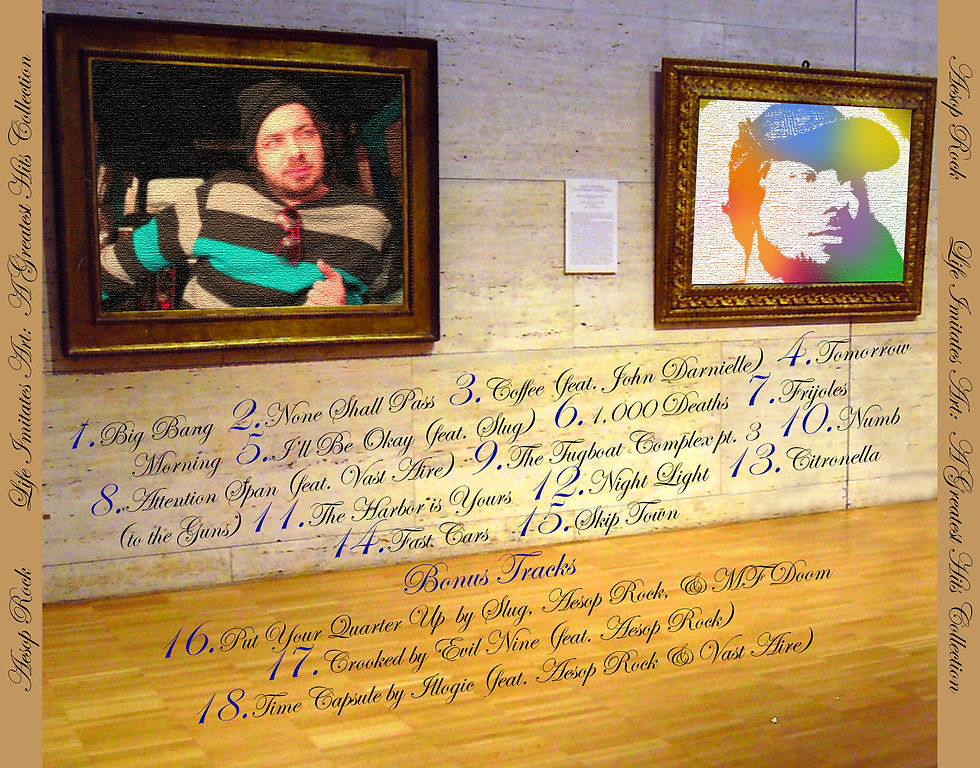 Aesop Rock     Life Imitates Art:  A Greatest Hits Collection
1. Big Bang 2. None Shall Pass 3. Coffee (feat. John Darnielle) 4. Tomorrow
Morning 5. I'll Be Okay (feat. Slug) 6. 1,000 Deaths 7. Frijoles
8. Attention Span (feat. Vast Aire) 9. The Tugboat Complex pt. 3 10. Numb
(to the Guns) 11. The Harbor is Yours 12. Night Light 13. Citronella
14. Fast Cars 15. Skip Town
Bonus Tracks
16. Put Your Quarter Up by Slug, Aesop Rock, & MF Doom
17. Crooked by Evil Nine (feat. Aesop Rock)
18. Time Capsule by Illogic (feat. Aesop Rock & Vast Aire)
Aesop Rock     Life Imitates Art:  A Greatest Hits Collection